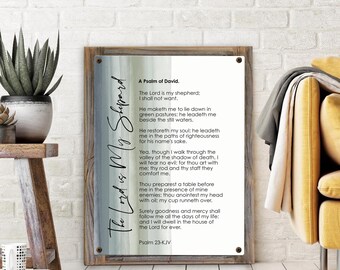 The Lord is My Shepard
A Psalm of David.
The Lord is my shepherd;
I shall not want.
He maketh me to lie down in
green pastures: he leadeth me
beside the still waters.
He restoreth my soul: he leadeth
me in the paths of righteousness
for his name's sake.
Yea, though I walk through the
valley of the shadow of death, I
will fear no evil: for thou art with
me; thy rod and thy staff they
comfort me.
Thou preparest a table before
me in the presence of mine
enemies: thou anointest my head
with oil; my cup runneth over.
Surely goodness and mercy shall
follow me all the days of my life:
and I will dwell in the house of
the Lord for ever.
Psalm 23-KJV